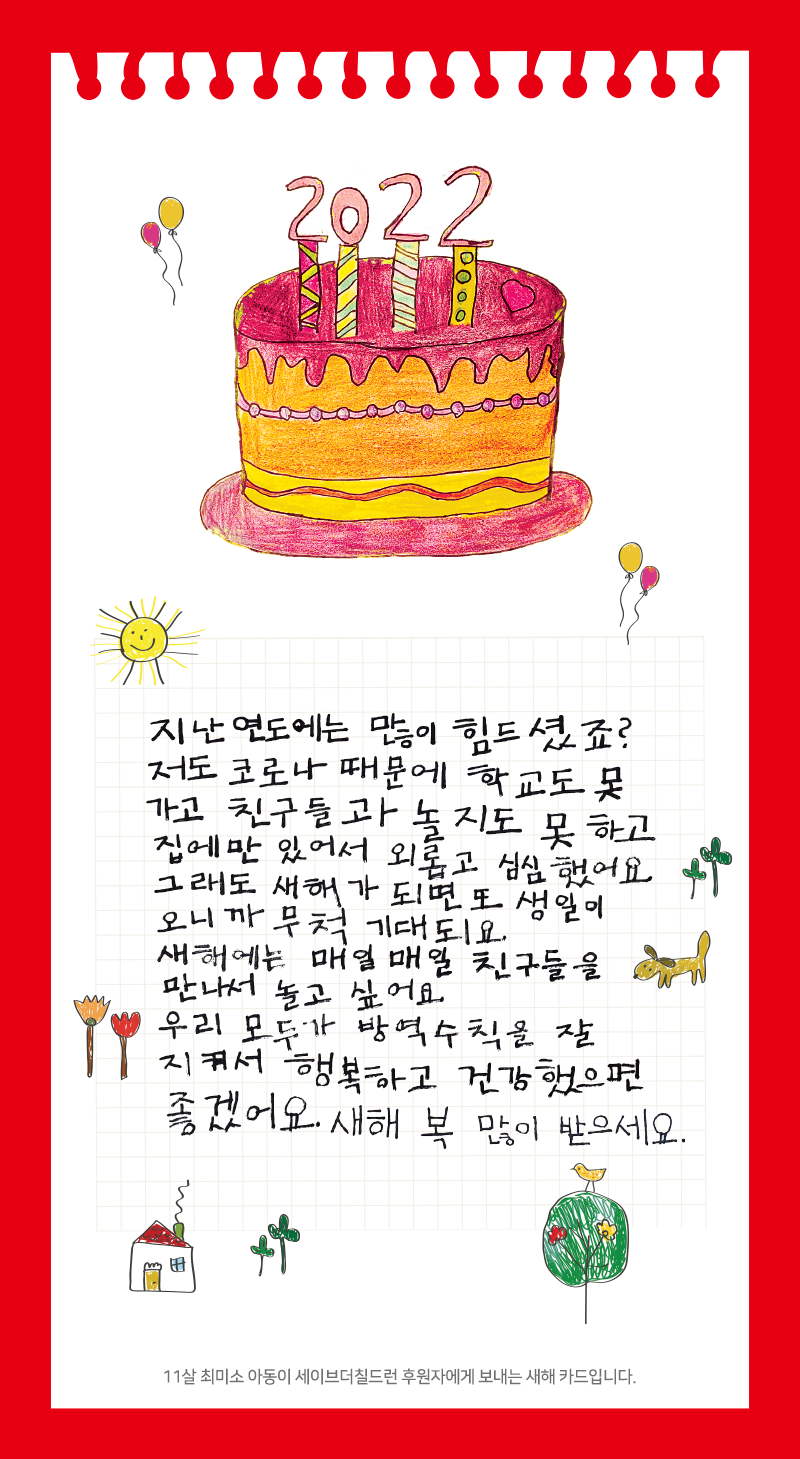 2022
지난 연도에는 많이 힘드셨죠?
저도 코로나 때문에 학교도 못
가고 친구들과 놀지도 못 하고
집에만 있어서 외롭고 심심했어요
그래도 새해가 되면 또 생일이
오니까 무척 기대되요.
새해에는 매일매일 친구들을
만나서 놀고 싶어요
우리 모두가 방역수칙을 잘
지켜서 행복하고 건강했으면
좋겠어요. 새해 복 많이 받으세요.
11살 최미소 아동이 세이브더칠드런 후원자에게 보내는 새해 카드입니다.